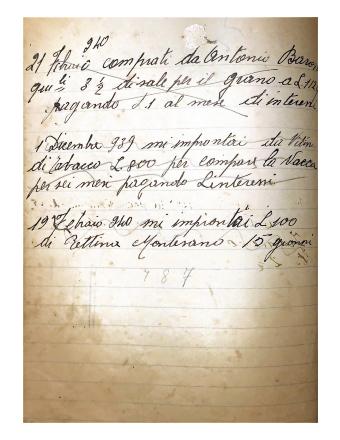 940
21 Febraio comprati da Antonio Baron
qu.li 3 ½ di sale per il grano a £
pagando £1 al mese di interen
1 Dicembre 939 mi improntai da
di tabacco £ 800 per comprare la Vacca
per sei mesi pagando L'interessi
19 Febraio 940 mi improntai £ 100
di Bettina Monterano 15 giorni
787